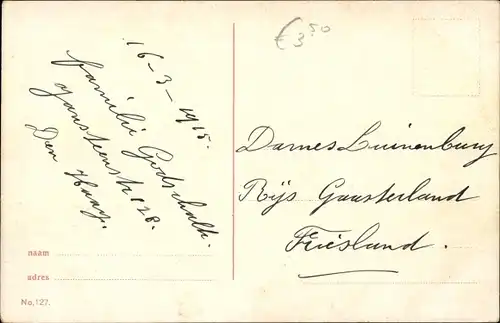 € 3.50
16-3-1915.
familie Godschalk.
Jansteenstr 128.
Den Haag.
Dames Luinenburg
Rijs Gaasterland
Friesland.
naam
adres
No, 127.